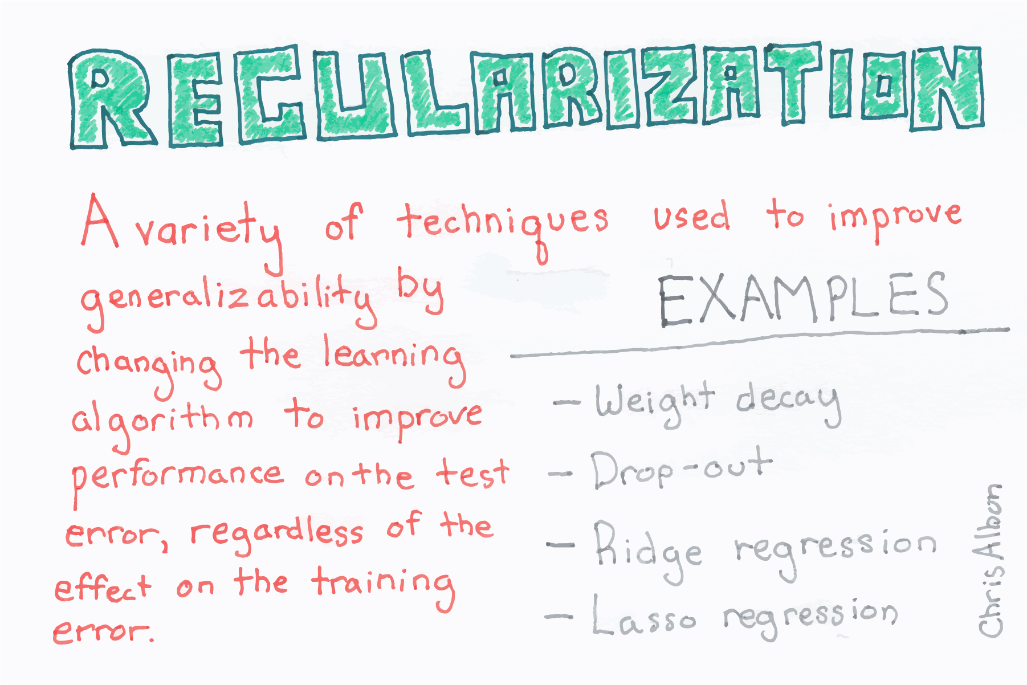 REGULARIZATION
A variety of techniques used to improve
generalizability by
changing the learning
algorithm to improve
performance on the test
error, regardless of the
effect on the training
error.
EXAMPLES
- Weight decay
- Drop-out
- Ridge regression
- Lasso regression
Chris Albon